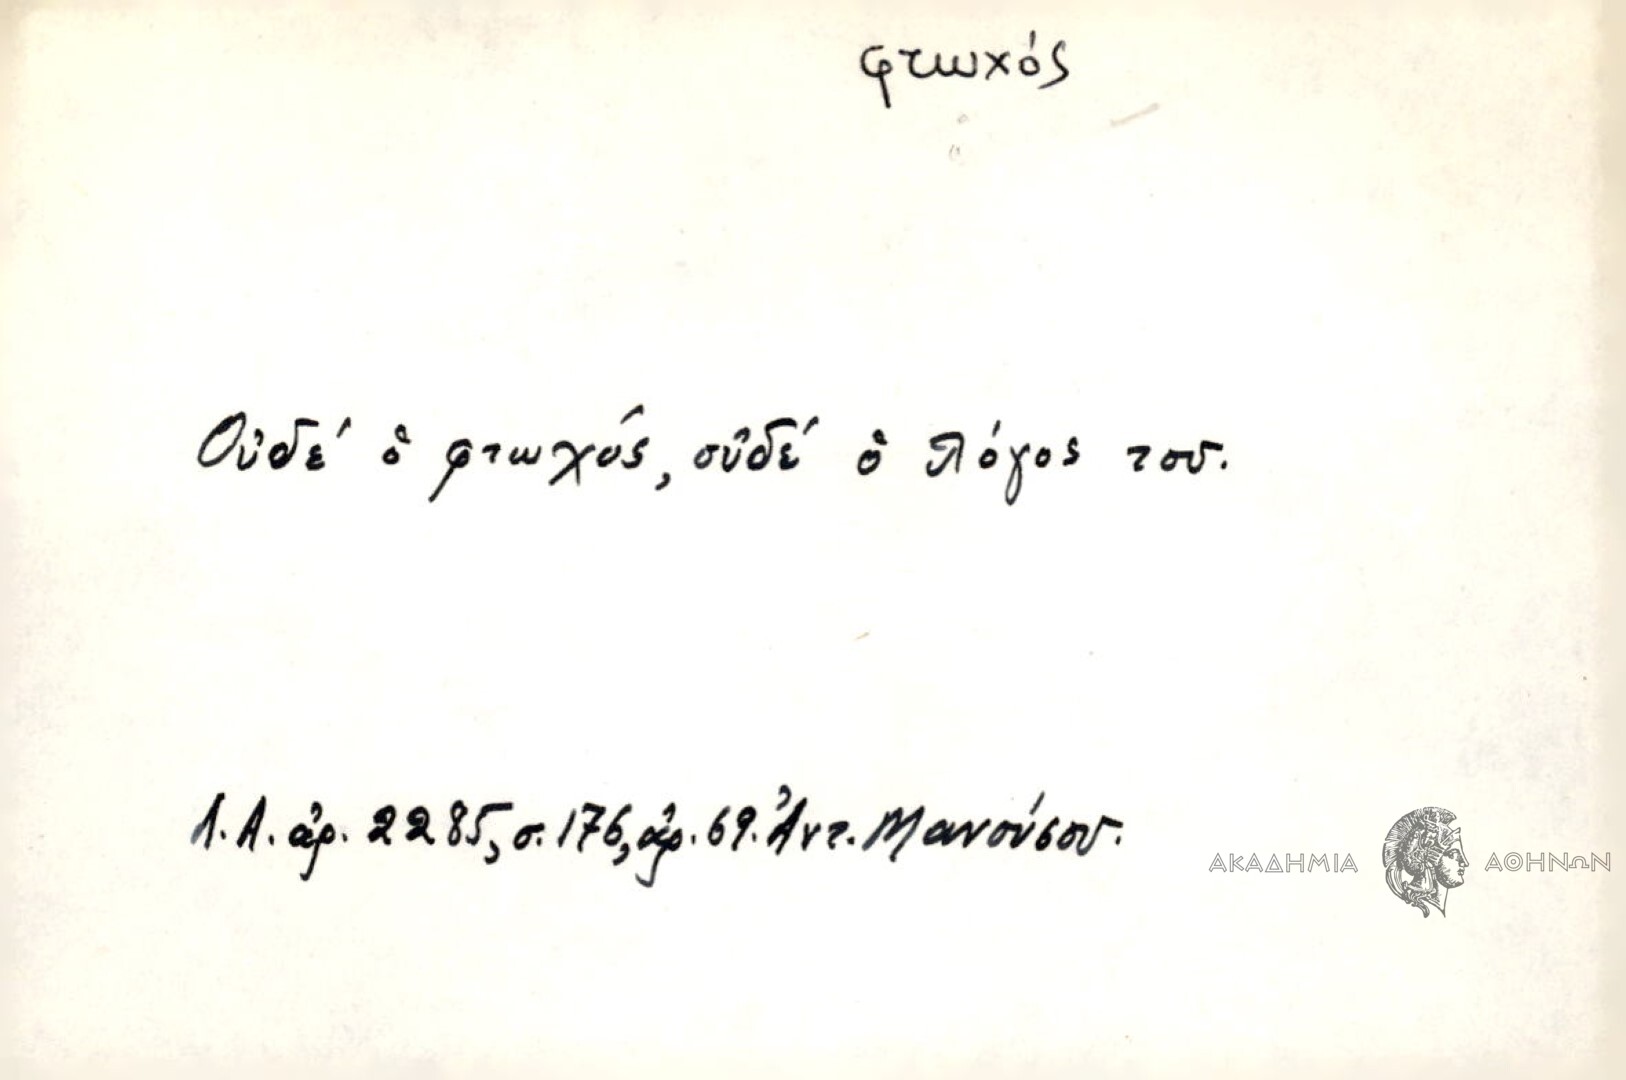 φτωχός
Οὐδέ ὁ φτωχός, οὐδέ ὁ λόγος του.
Λ.Α. ἀρ. 2285, σ. 176, ἀρ. 69. Ἀντ. Μανούσου.
ΑΚΑΔΗΜΙΑ ΑΘΗΝΩΝ